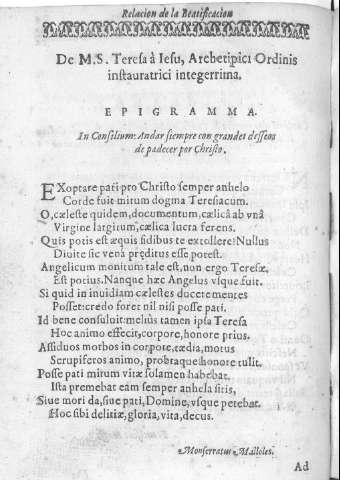 Relacion de la Beatificacion
De M.S. Teresa à Iesu, Archetipici Ordinis
instauratrici integerrima.
EPIGRAMMA.
In Consilium: Andar siempre con grandes desseos
de padecer por Christo.
EXoptare pati pro Christo semper anhelo
Corde fuit mirum dogma Teresiacum.
O, cæleste quidem, documentum, cælicâ ab vnâ
Virgine largitum, cælica lucra ferens.
Quis potis est æquis fidibus te extollere? Nullus
Diuite sic venâ præditus esse potest.
Angelicum monitum tale est, non ergo Teresæ,
Est potius. Nanque hæc Angelus vsque fuit.
Si quid in inuidiam cælestes ducere mentes
Posset: credo foret nil nisi posse pati.
Id bene consuluit: meliùs tamen ipsa Teresa
Hoc animo effecit, corpore, honore prius.
Assiduos morbos in corpore, tædia, motus
Scrupiferos animo, probraque honore tulit.
Posse pati mirum vitæ solamen habebat.
Ista premebat eam semper anhela sitis,
Siue mori da, siue pati, Domine, vsque petebat.
Hoc sibi delitiæ, gloria, vita, decus.
Monserratus Malloles.
Ad